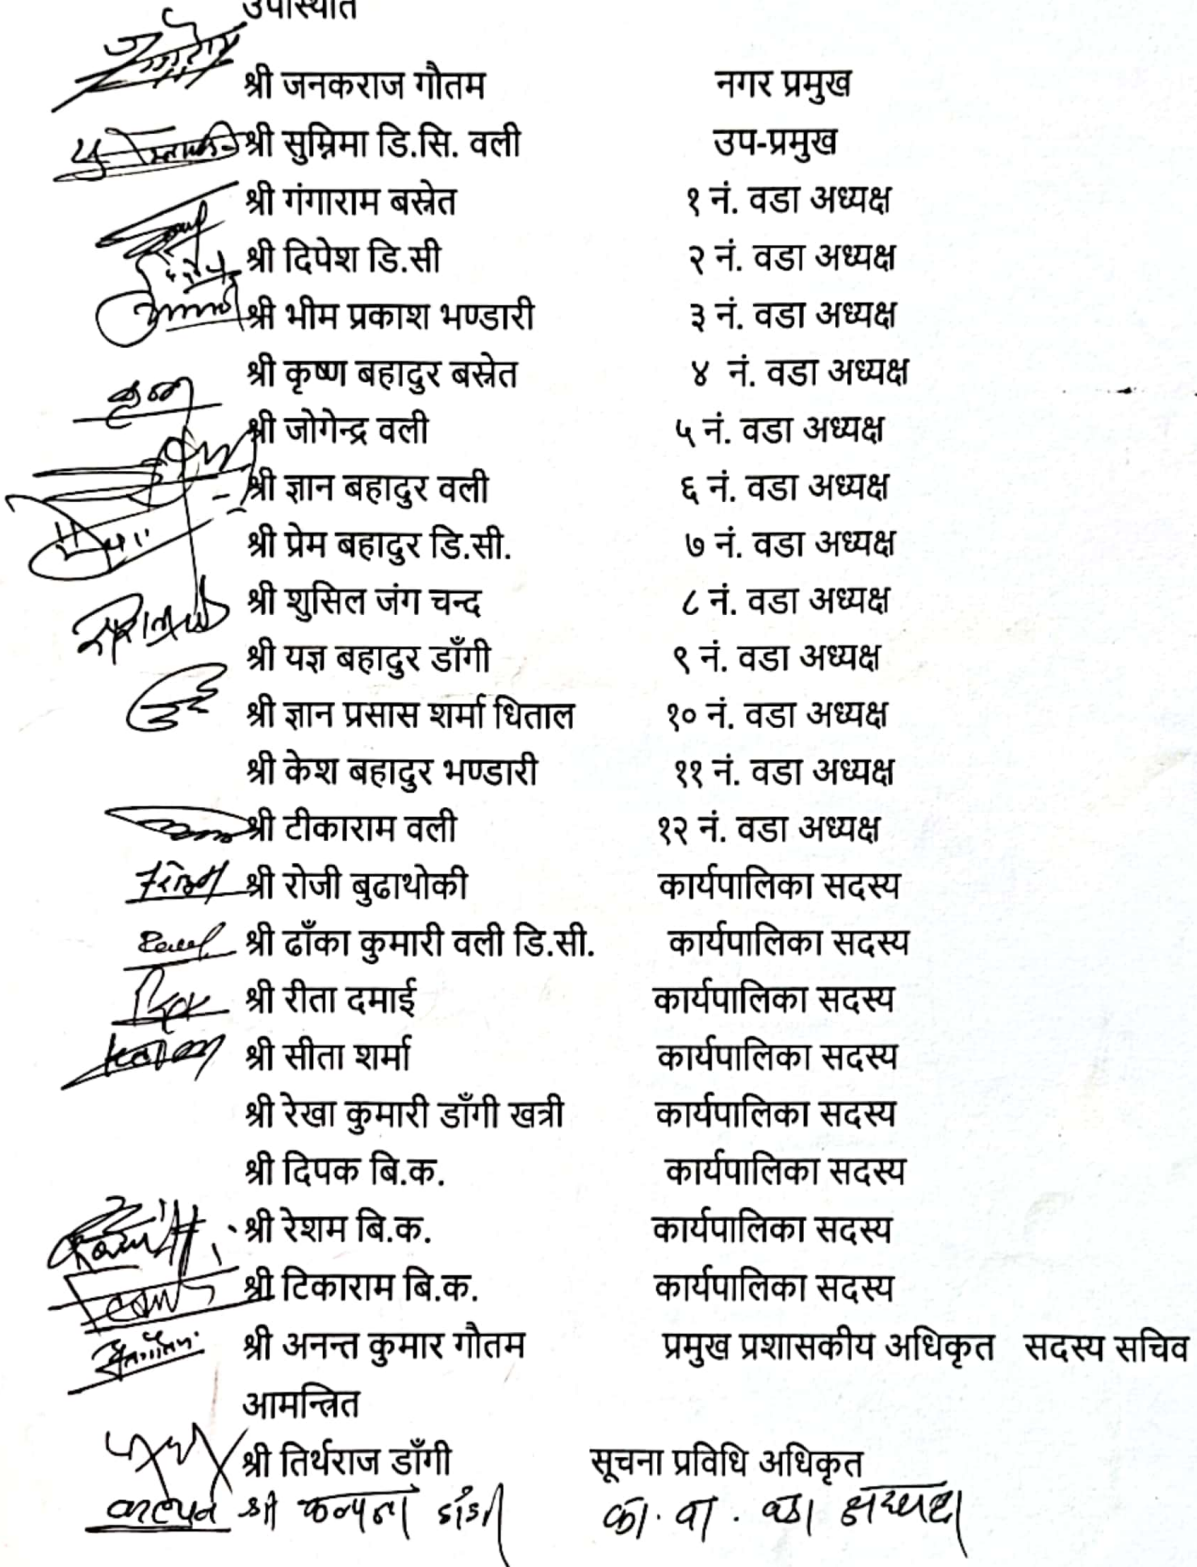 उपस्थिति
श्री जनकराज गौतम नगर प्रमुख
श्री सुम्निमा डि.सि. वली उप-प्रमुख
श्री गंगाराम बस्नेत १ नं. वडा अध्यक्ष
श्री दिपेश डि.सी २ नं. वडा अध्यक्ष
श्री भीम प्रकाश भण्डारी ३ नं. वडा अध्यक्ष
श्री कृष्ण बहादुर बस्नेत ४ नं. वडा अध्यक्ष
श्री जोगेन्द्र वली ५ नं. वडा अध्यक्ष
श्री ज्ञान बहादुर वली ६ नं. वडा अध्यक्ष
श्री प्रेम बहादुर डि.सी. ७ नं. वडा अध्यक्ष
श्री शुसिल जंग चन्द ८ नं. वडा अध्यक्ष
श्री यज्ञ बहादुर डाँगी ९ नं. वडा अध्यक्ष
श्री ज्ञान प्रसास शर्मा धिताल १० नं. वडा अध्यक्ष
श्री केश बहादुर भण्डारी ११ नं. वडा अध्यक्ष
श्री टीकाराम वली १२ नं. वडा अध्यक्ष
श्री रोजी बुढाथोकी कार्यपालिका सदस्य
श्री ढाँका कुमारी वली डि.सी. कार्यपालिका सदस्य
श्री रीता दमाई कार्यपालिका सदस्य
श्री सीता शर्मा कार्यपालिका सदस्य
श्री रेखा कुमारी डाँगी खत्री कार्यपालिका सदस्य
श्री दिपक बि.क. कार्यपालिका सदस्य
श्री रेशम बि.क. कार्यपालिका सदस्य
श्री टिकाराम बि.क. कार्यपालिका सदस्य
श्री अनन्त कुमार गौतम प्रमुख प्रशासकीय अधिकृत सदस्य सचिव
आमन्त्रित
श्री तिर्थराज डाँगी सूचना प्रविधि अधिकृत
श्री कल्पना डाँगी का. वा. वडा अध्यक्ष